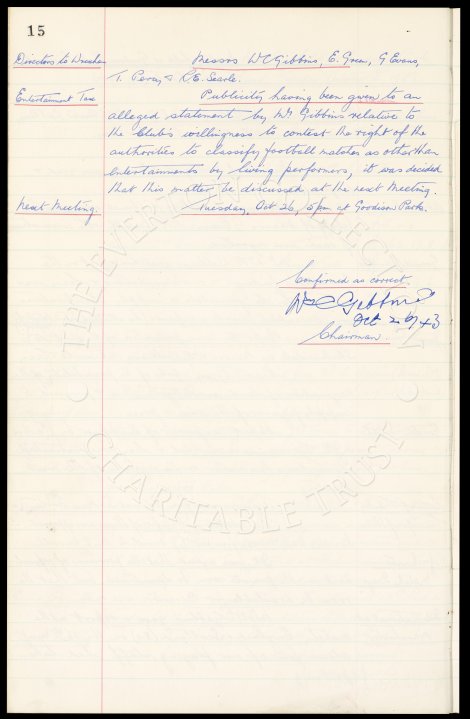 15
Directors to Wrexham Messrs WC Gibbins, E. Green, G Evans,
T. Percy, & R.E. Searle.
Entertainment Tax Publicity having been given to an
alleged statement by Mr Gibbins relative to
the Club's willingness to contest the right of the
authorities to classify football matches as other than
entertainments by living performers, it was decided
that this matter be discussed at the next Meeting.
Next Meeting. Tuesday, Oct 26, 5pm at Goodison Park.
Confirmed as correct.
WC Gibbins
Oct 26/43
Chairman.
THE EVERTON COLLECTION
CHARITABLE TRUST